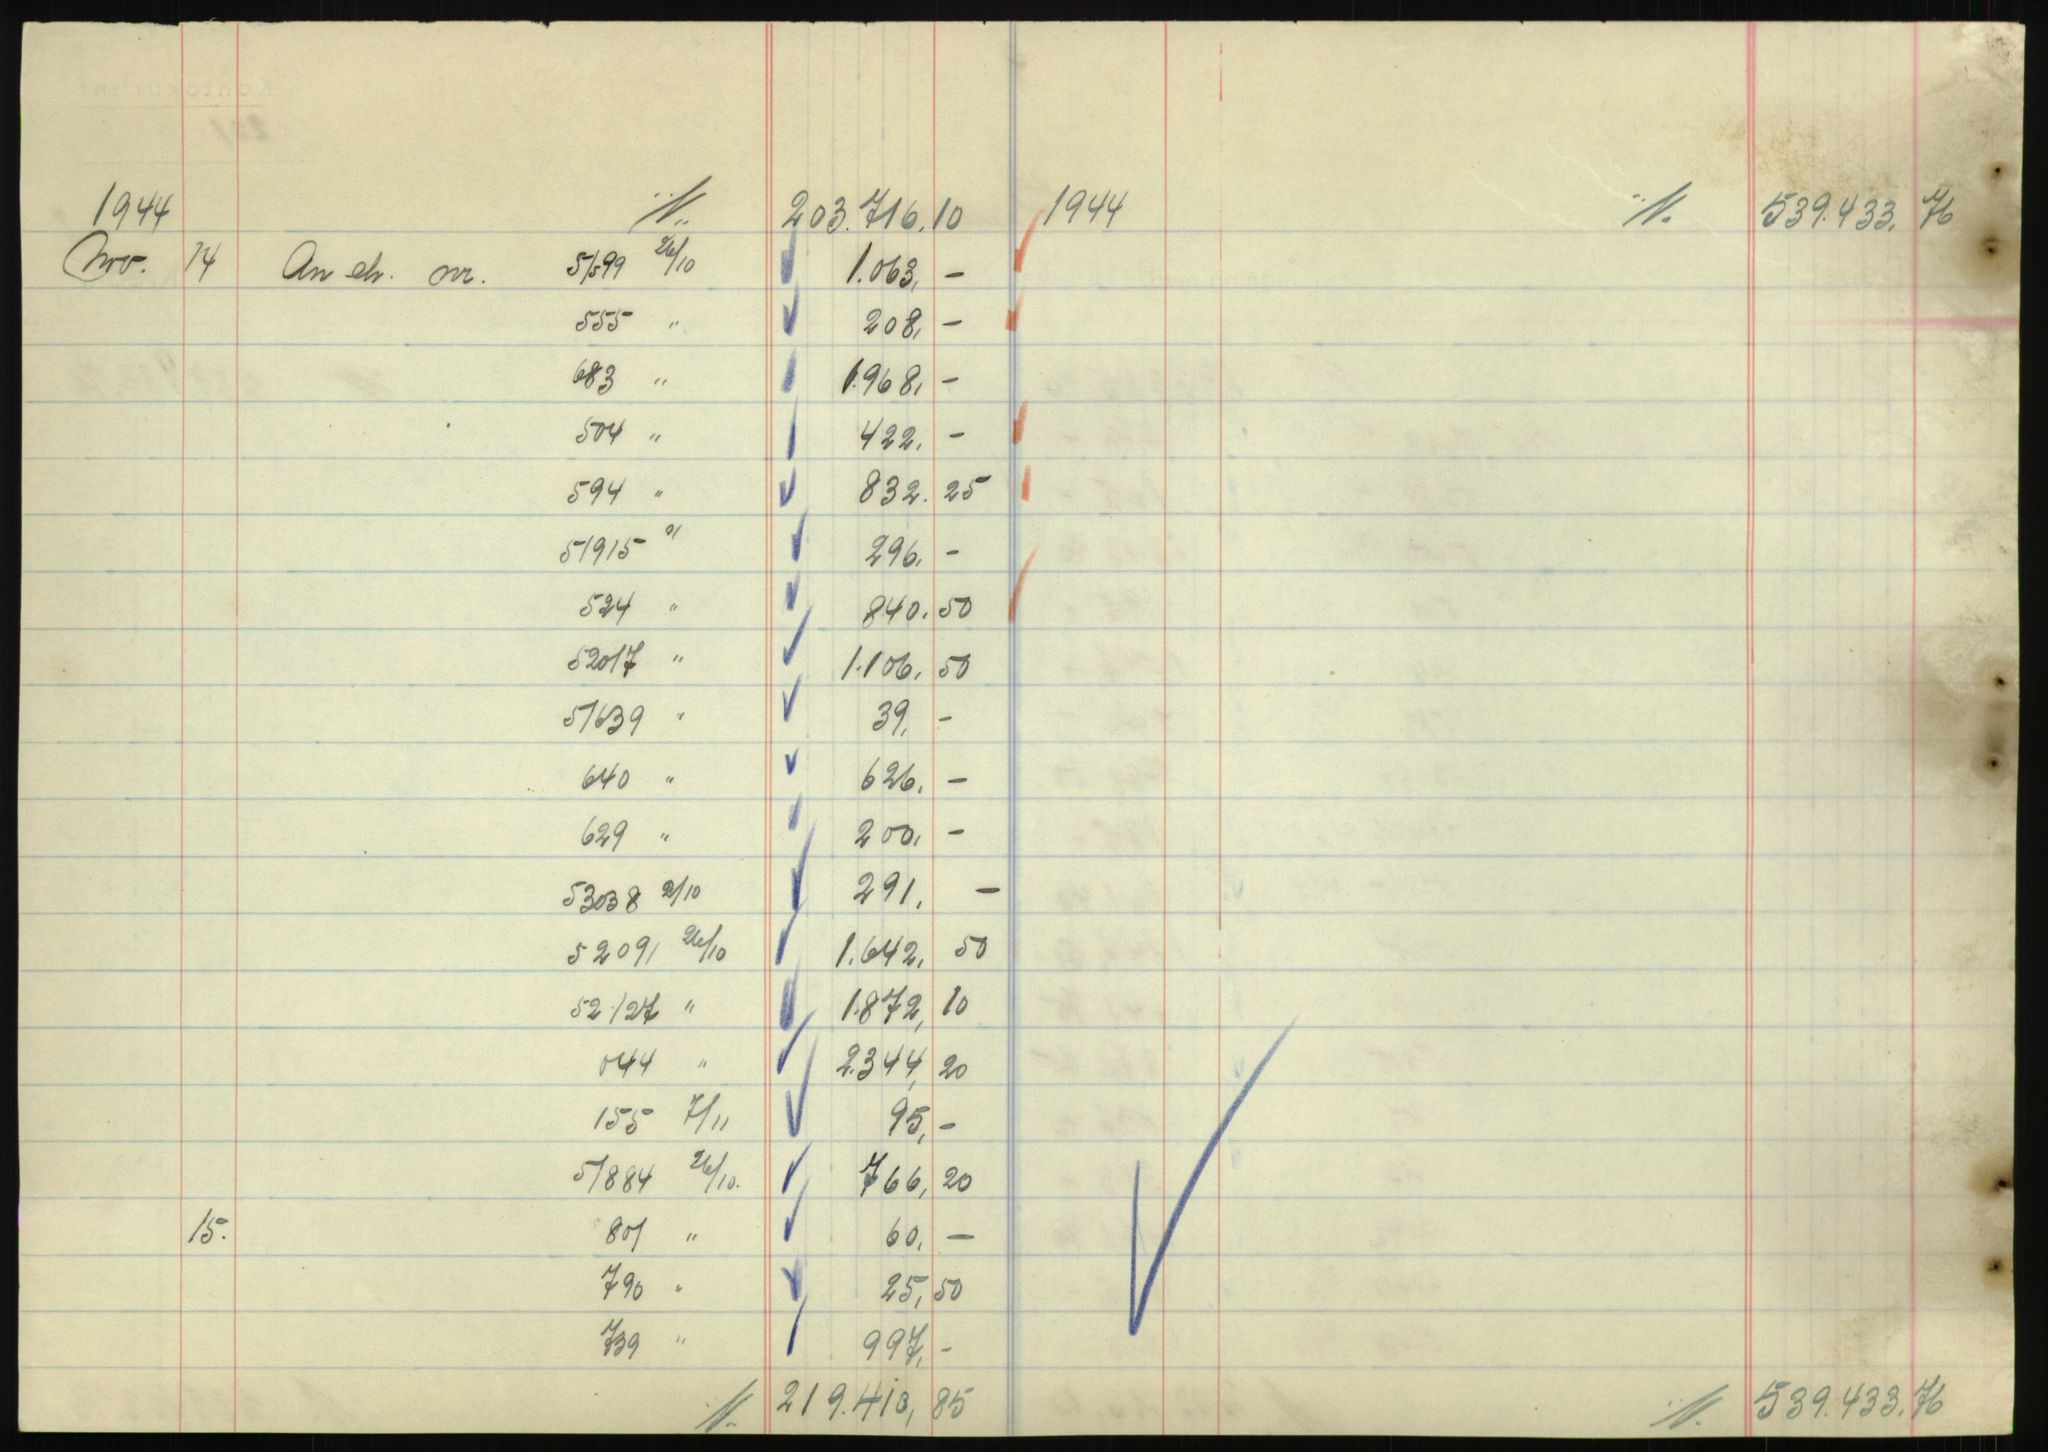 1944 203.716,10 1944 539.433,76
Nov. 14 An ch. nr. 51599 26/10 1.063,-
555 " 208,-
683 " 1.968,-
504 " 422,-
594 " 832.25
51915 " 296,-
524 " 840.50
52017 " 1.106,50
51639 " 39,-
640 " 626,-
629 " 200,-
53038 2/10 291,-
52091 26/10 1.642,50
52127 " 1.872,10
044 " 2.344,20
155 7/11 95,-
51884 26/10. 766,20
15. 801 " 60,-
790 " 25,50
739 " 997,-
219.410,85 539.433,76